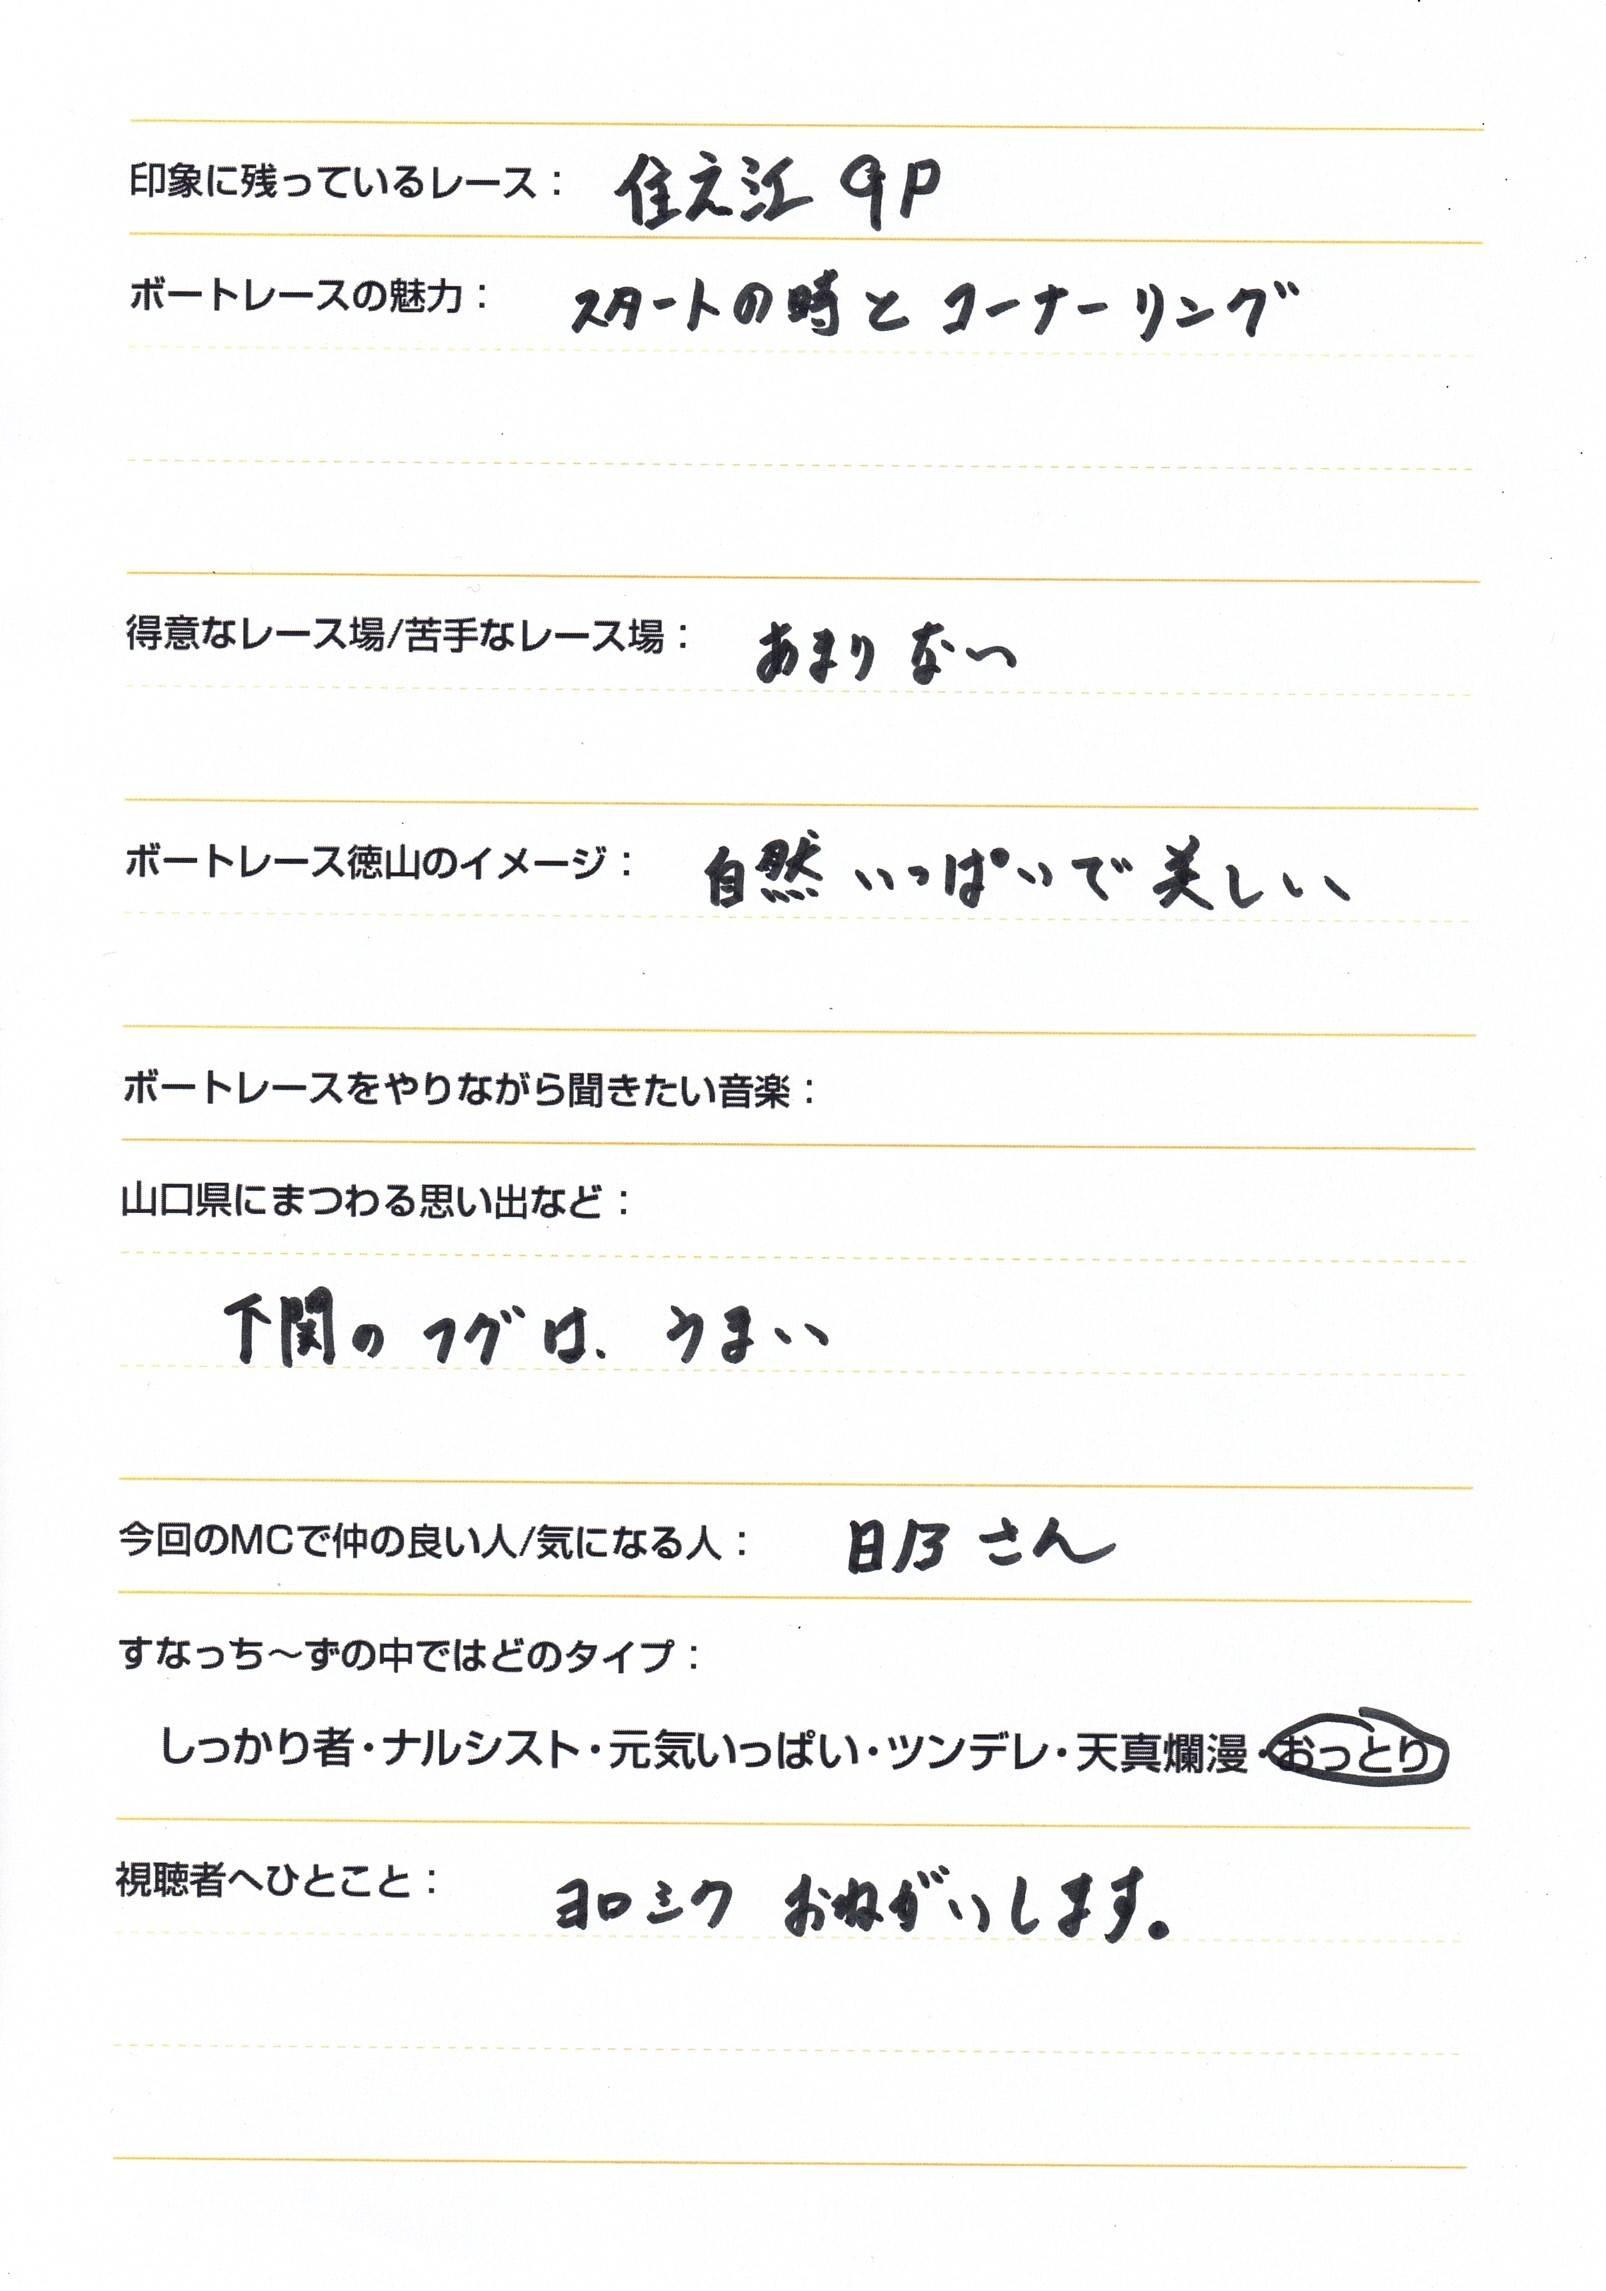 印象に残っているレース： 住之江 GP
ボートレースの魅力： スタートの時と コーナーリング
得意なレース場/苦手なレース場： あまり ない
ボートレース徳山のイメージ： 自然 いっぱいで 美しい
ボートレースをやりながら聞きたい音楽：
山口県にまつわる思い出など：
下関の フグは、うまい
今回のMCで仲の良い人/気になる人： さん
すなっち～ずの中ではどのタイプ：
しっかり者・ナルシスト・元気いっぱい・ツンデレ・天真爛漫・おっとり
視聴者へひとこと： ヨロシク おねがいします。